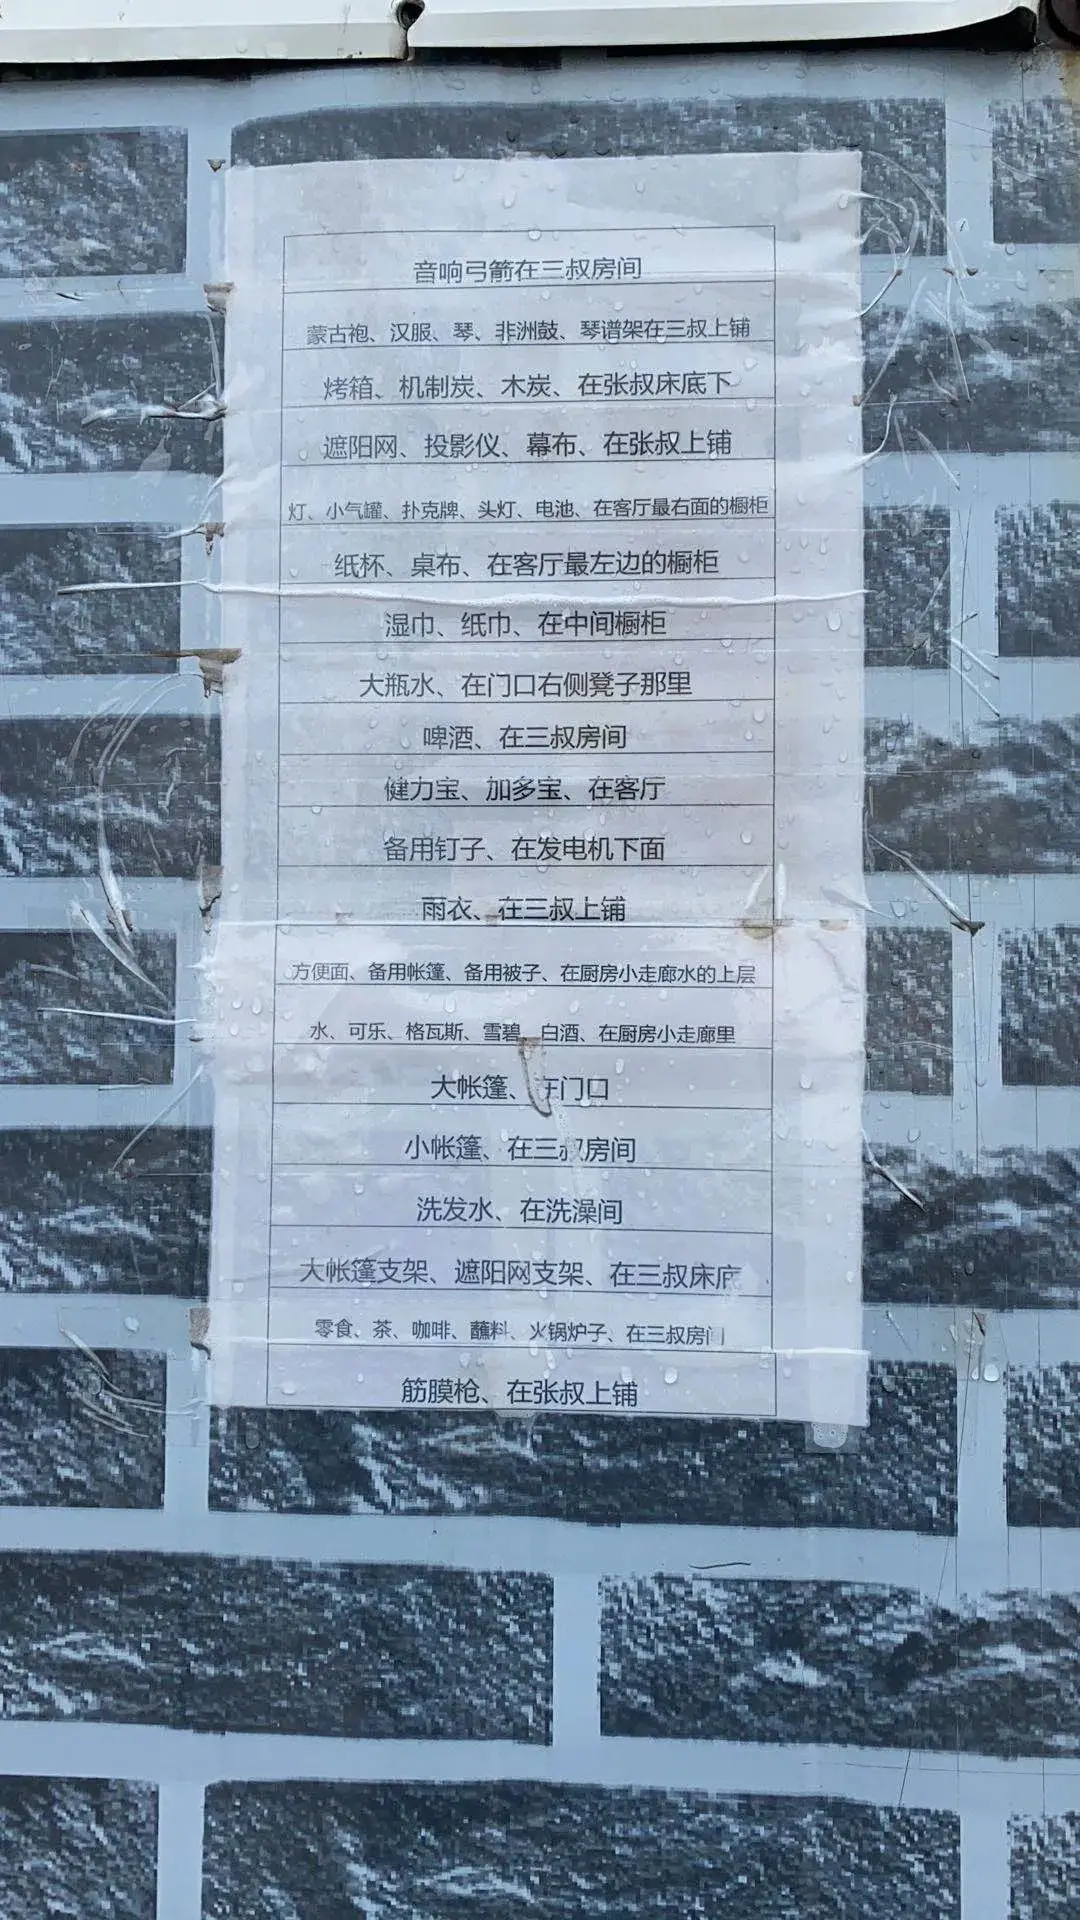 音响弓箭在三叔房间
蒙古袍、汉服、琴、非洲鼓、琴谱架在三叔上铺
烤箱、机制炭、木炭、在张叔床底下
遮阳网、投影仪、幕布、在张叔上铺
灯、小气罐、扑克牌、头灯、电池、在客厅最右面的橱柜
纸杯、桌布、在客厅最左边的橱柜
湿巾、纸巾、在中间橱柜
大瓶水、在门口右侧凳子那里
啤酒、在三叔房间
健力宝、加多宝、在客厅
备用钉子、在发电机下面
雨衣、在三叔上铺
方便面、备用帐篷、备用被子、在厨房小走廊水的上层
水、可乐、格瓦斯、雪碧、白酒、在厨房小走廊里
大帐篷、在门口
小帐篷、在三叔房间
洗发水、在洗澡间
大帐篷支架、遮阳网支架、在三叔床底
零食、茶、咖啡、蘸料、火锅炉子、在三叔房间
筋膜枪、在张叔上铺